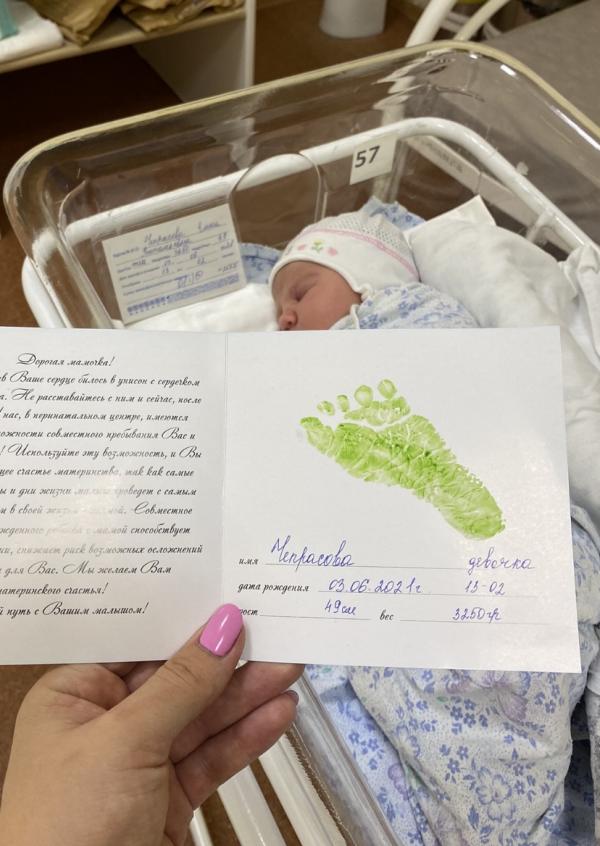 57
Чепрасова
Дорогая мамочка!
в Ваше сердце билось в унисон с сердечком
а. Не расставайтесь с ним и сейчас, после
нас, в перинатальном центре, имеются
можности совместного пребывания Вас и
! Используйте эту возможность, и Вы
щее счастье материнства, так как самые
ы и дни жизни малыш проведет с самым
м в своей жизни - мамой. Совместное
жденного ребенка с мамой способствует
ии, снижает риск возможных осложнений
для Вас. Мы желаем Вам
материнского счастья!
й путь с Вашим малышом!
имя Чепрасова девочка
дата рождения 03.06.2021г 13-02
рост 49см вес 3250гр